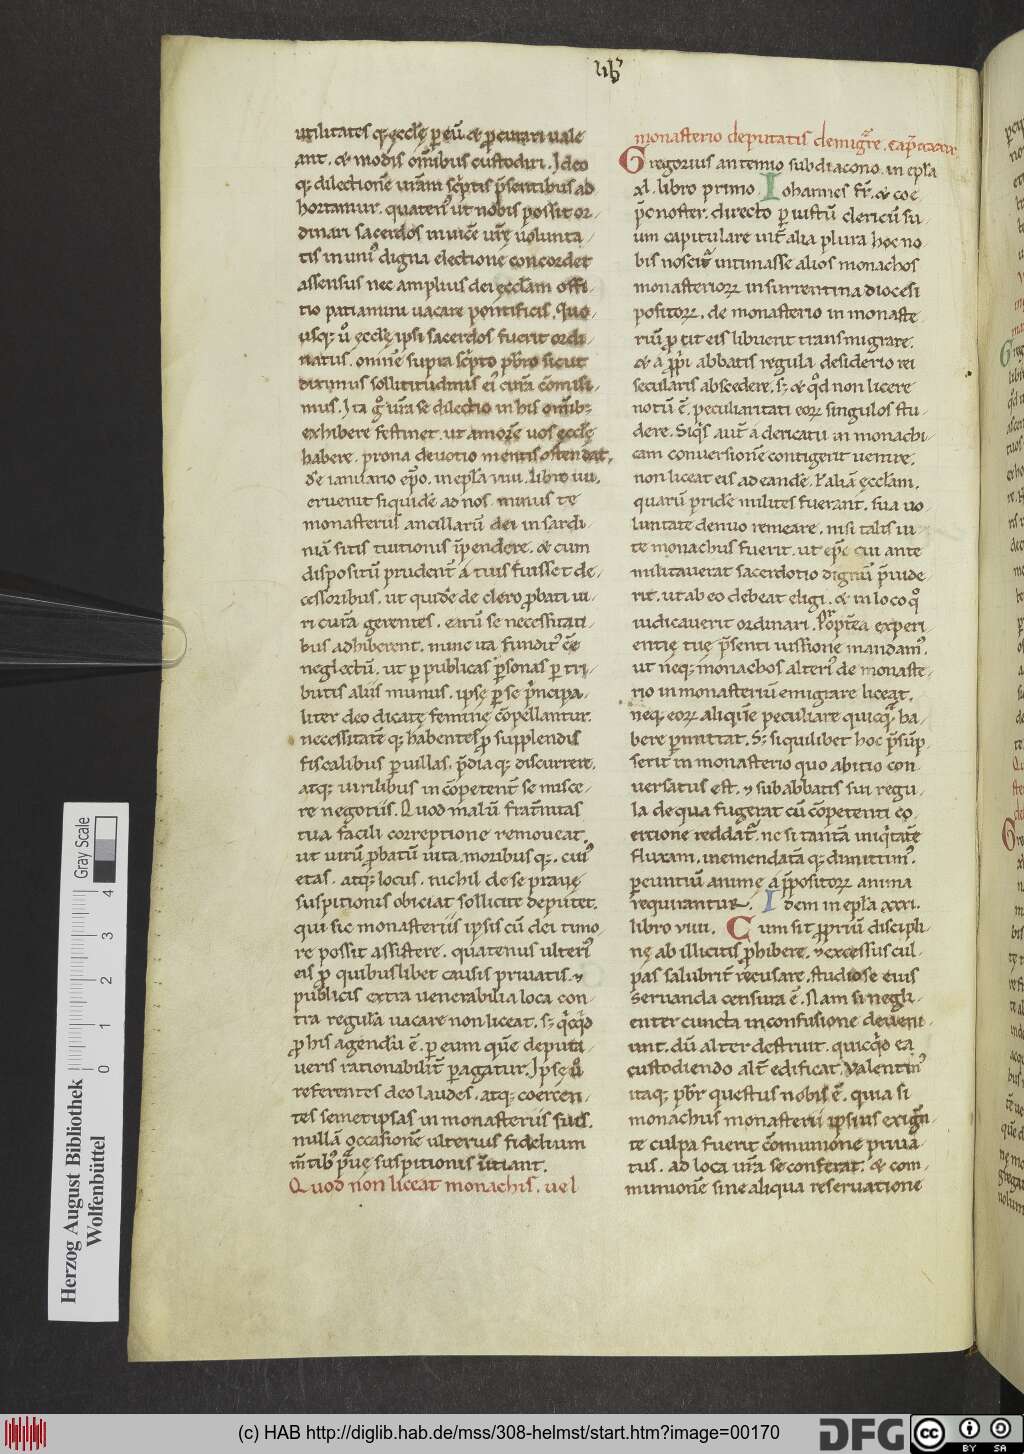 lib᷒
utilitates q; ęccl̄ę ꝑ eū & ꝓcurari uale
ant. & modis om̄ibus custodiri. Ideo
q; dilectionē urām sc̄ptis p̄sentibus ad
hortamur. quaten᷒ ut nobis possit or
dinari sacerdos inuicē urę̄ uolunta
tis in unū digna electione concordet
assensus nec amplius dei ęccl̄am offi
tio patiamini uacare pontificis. Quo
usq; ū ęccl̄ę ipsi sacerdos fuerit ordi
natus. omnē supra sc̄pto pb̄ro sicut
diximus sollicitudinis ei᷒ curā cōmisi
mus. Ita g̊ urā se dilectio in his omīb;
exhibere festinet. ut amorē uos ęccl̄ę
habere. prona deuotio mentis ostendat.
de ianuario ep̄o. in epl̄a viiii. libro iiii.
eruerit siquidē ad nos minus te
monasteriis ancillarū dei in sardi
niā sitis tuitionis īpendere. & cum
dispositū prudent̄ a tuis fuisset de
cessoribus. ut quidē de clero ꝓbati ui
ri curā gerentes. earū se necessitati
bus adhiberent. nunc ita fundit᷒ eē̄
neglectū. ut ꝑ publicas ꝑsonas ꝑ tri
butis aliis munus. ipsę ꝑ se p̄ncipa
liter deo dicatę feminę cōpellantur.
necessitatē q; habentes ꝓ supplendis
fiscalibus ꝑ uillas. p̄dia q; discurrere.
atq; uirilibus incōpetent̄ se misce
re negotiis. Quod malū frat̄nitas
tua facili correptione remoueat.
ut uirū ꝓbatū uita moribus q;. cui᷒
ętas. atq; locus. nichil de se prauę
suspitionis obiciat sollicite deputet.
qui sic monasteriis ipsis cū dei timo
re possit assistere. quatenus ulteri᷒
eis ꝓ quibuslibet causis priuatis ⁊
publicis extra uenerabilia loca con
tra regulā uacare non liceat. s; q̄cq̄d
ꝓ his agendū ē. ꝑ eum quē deputa
ueris rationabilit̄ ꝑagatur. Ipsę ū
referentes deo laudes. atq; coercen
tes semetipsas in monasteriis suis.
nullā occasionē ulterius fidelium
m̄tib᷒ p̄uę suspitionis īitiant.
Quod non liceat monachis. uel
monasterio deputatis demigrare. cap̄
Gregorius antemio subdiacono. in epl̄a
xl. libro primo. Iohannes fr̄. & coe
p̄c noster. directo ꝑ iustū clericū su
um capitulare int̄ alia plura hoc no
bis noscit᷒ intimasse alios monachos
monasterioꝝ in surrentina diocesi
positoꝝ. de monasterio in monaste
riū ꝓ ut eis libuerit transmigrare.
& a p̄p̄i abbatis regula desiderio rei
secularis abscedere. s; & q̄d non licere
notū ē. peculiaritati eoꝝ singulos stu
dere. Siq̄s aut̄ a clericatu in monachi
cam conuersionē contigerit uenire.
non liceat eis ad eandē. ł aliā ęccl̄am.
quarū pridē milites fuerant. sua uo
luntate denuo remeare. nisi talis ui
te monachus fuerit. ut ep̄c cui ante
militauerat sacerdotio dignū p̄uide
rit. ut ab eo debeat eligi. & in loco q̊
iudicauerit ordinari. Propt̄ea experi
entię tuę p̄senti iussione mandam᷒.
ut neq; monachos alteri᷒ de monast
rio in monasteriū emigrare liceat.
neq; eoꝝ aliquē peculiare quicq̄ ha
bere ꝑmittat. S; si quilibet hoc p̄sūp
serit in monasterio quo ab initio con
uersatus est. ⁊ sub abbatis sui regu
la de qua fugerat cū cōpetenti co
ercione reddat̄. nē si tantā iniq̄tatē
fluxam. inemendatā q; dimittim᷒.
pereuntiū animę a p̄positoꝝ anima
requirantur. Idem in epl̄a xxxi.
libro viiii. Cum sit ꝓpriū discipli
nę ab illicitis ꝓhibere. ⁊ excessus cul
pas salubrit̄ recusare. studiose eius
seruanda censura ē. Nam si negli
enter cuncta in confusione deueni
unt. dū alter destruit. quicq̄d ea
custodiendo alt̄ edificat. Valentin᷒
itaq; pb̄r questus nobis ē. quia si
monachus monasterii ipsius exigen
te culpa fuerit cōmunione priua
tus. ad loca urā se conferat. & com
munionē sine aliqua reseruatione
Herzog August Bibliothek
Wolfenbüttel
Gray Scale
0 1 2 3 4
(c) HAB http://diglib.hab.de/mss/308-helmst/start.htm?image=00170
DFG
cc BY SA